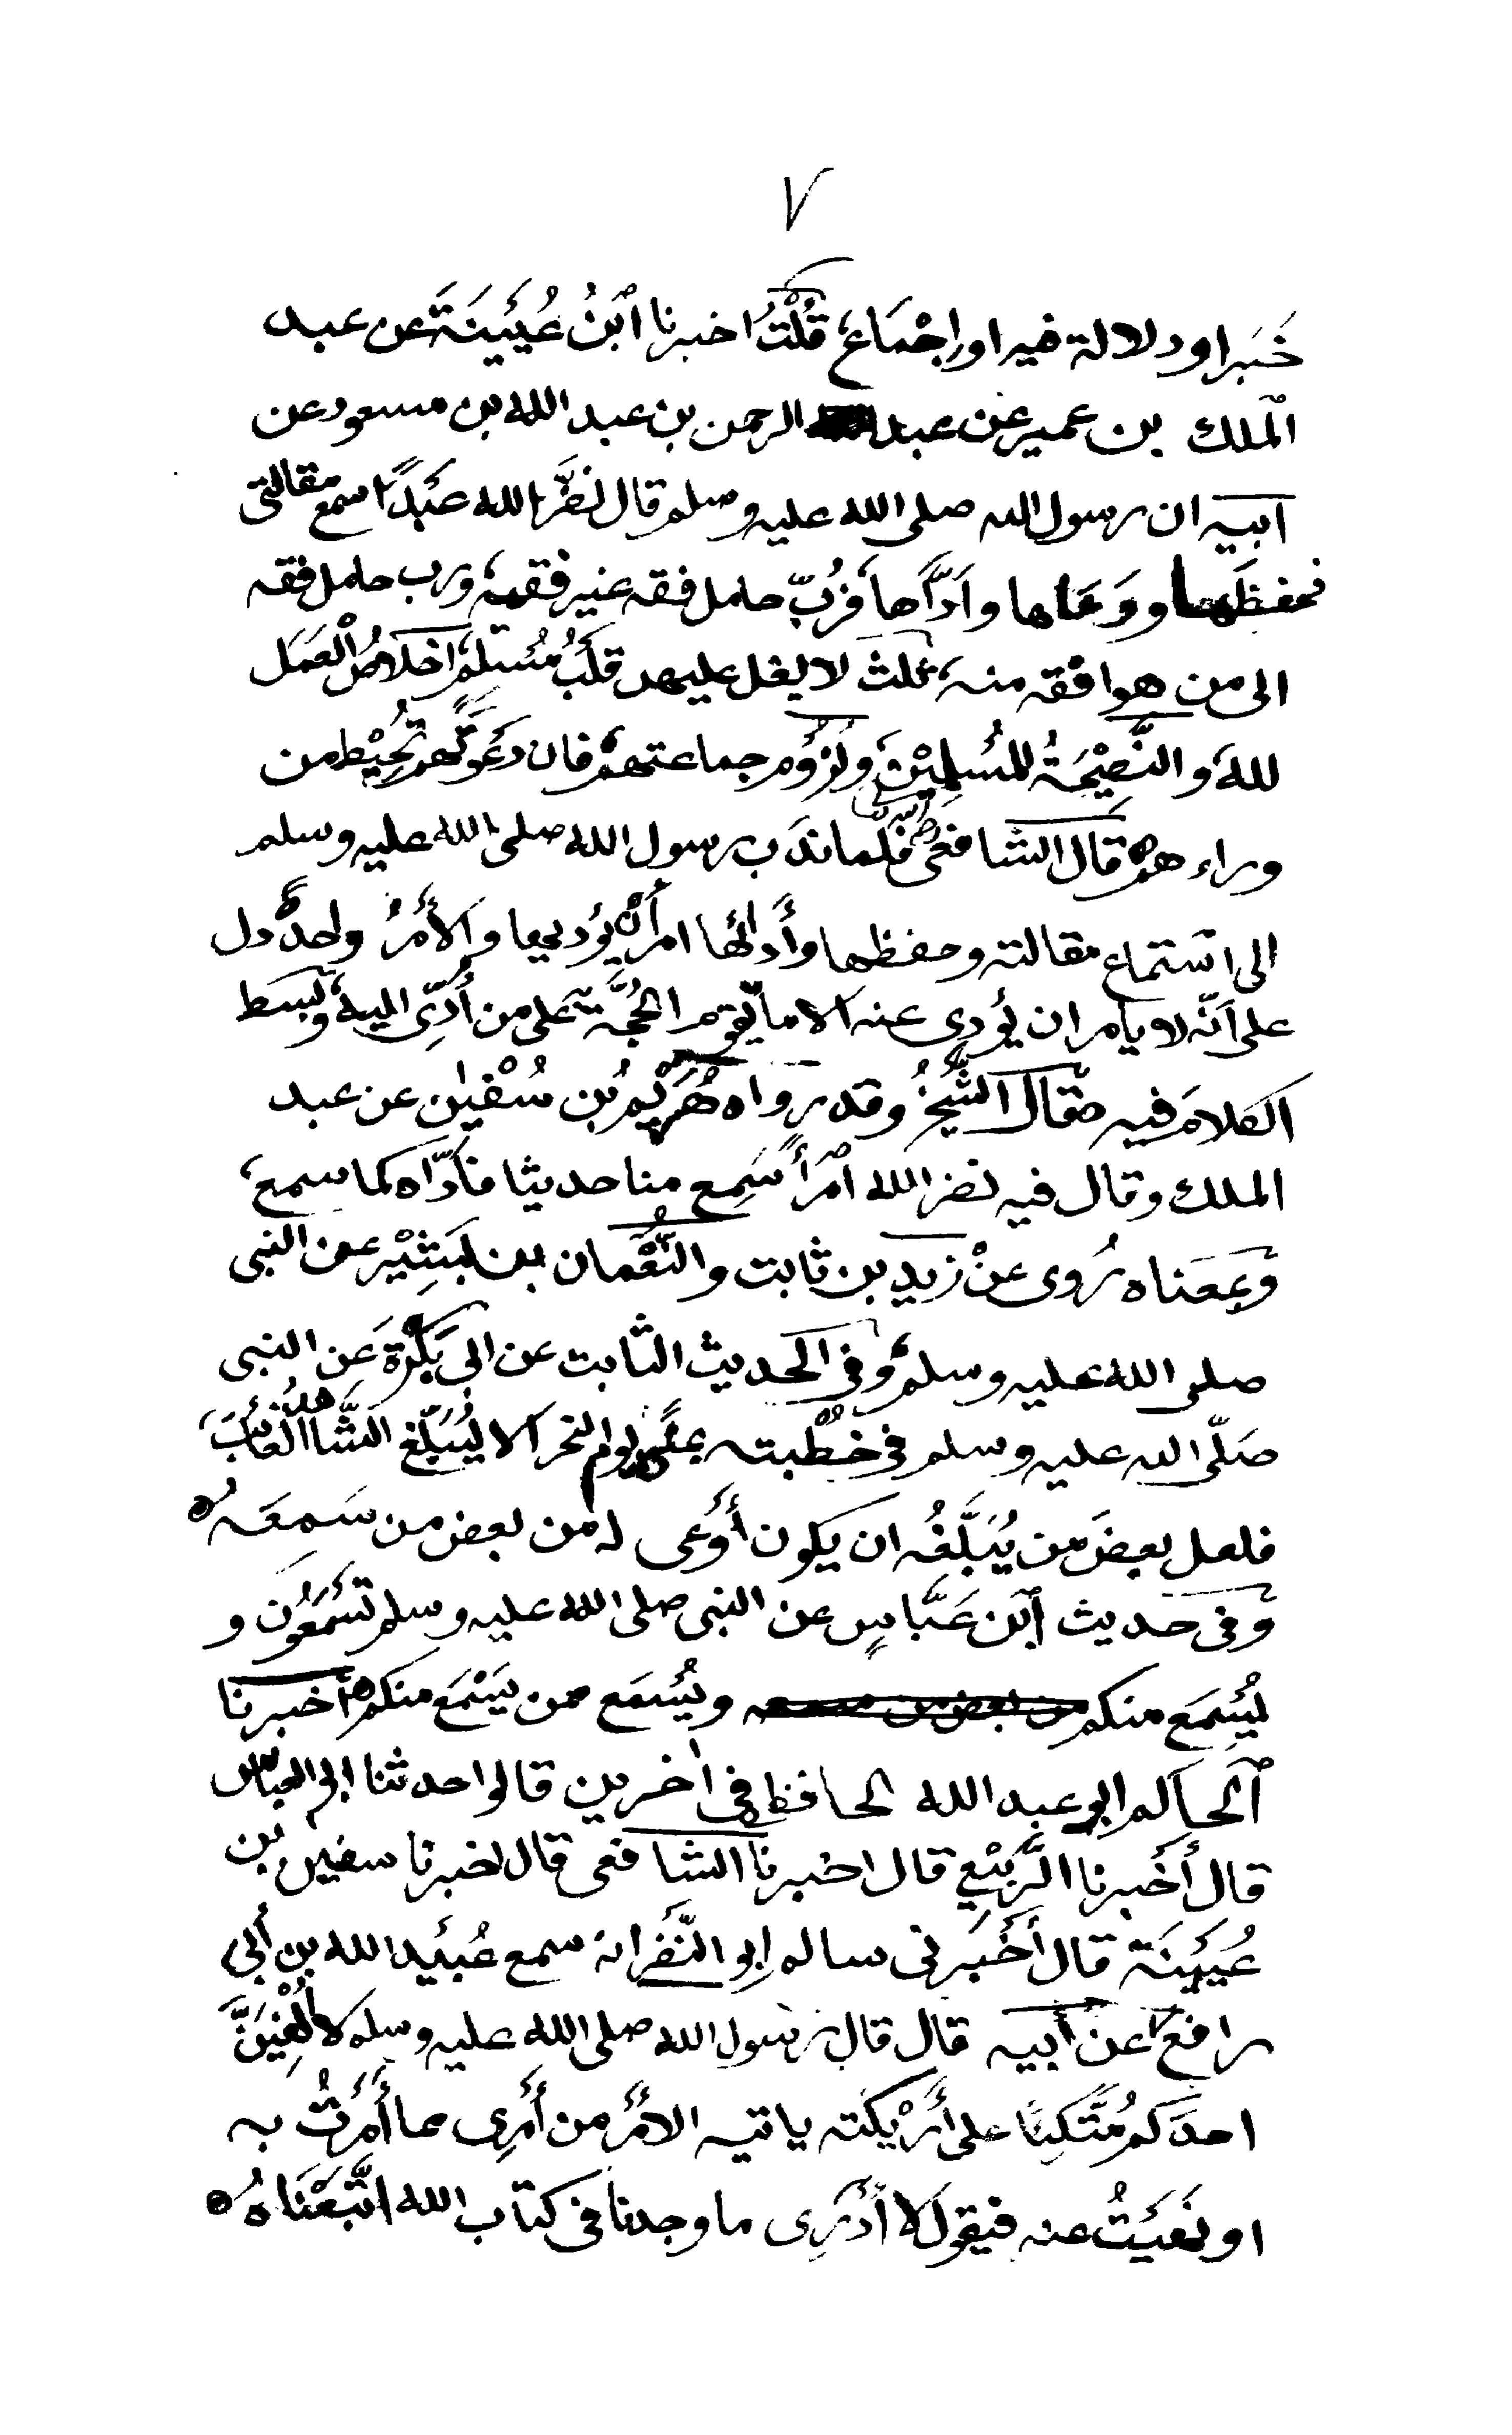 ٧
خَبَر او دلالة فيه او اِجْمَاع، قُلْتُ اخبرنا ابْنُ عُيَيْنَةَ عن عبد
الملك بن عمير عن عبد الرحمن بن عبد الله بن مسعود عن
ابيه ان رسول الله صلى الله عليه وسلم قال نَضَّرَ الله عَبْدًا سمع مقالتى
فحفظَها ووَعَاها وادَّاها، فَرُبَّ حامل فقه غير فقيه، ورب حامل فقه
الى من هو افقه منه، ثلث لا يغل عليهن قَلْبُ مُسْلِمٍ، اخلاصُ الْعَمَل
لله، والنَّصِيْحَةُ للمُسْلِمِيْنَ، ولُزُوْم جماعتهم، فان دَعْوَتَهم تُحِيْط من
وراءهم ٥ قَالَ الشافعى فلَمّا ندَب رسول الله صلى الله عليه وسلم
الى استماع مقالته وحفظها وأَدائها امرأً يؤديها والأَمْرُ واحدٌ دل
على انّه لا يامر ان يُؤدى عنه الا ما تقوم الحُجَّة على من أُدِّىَ اليه، وبسط
الكلامَ فيه ٥ قال الشَّيْخُ وقد رواه هُرَيْمُ بن سُفْيٰن عن عبد
الملك وقال فيه نضر الله امْرَأً سَمِع منا حديثا فأدّاه كما سمع،
وبمعناه رُوى عنْ زيد بن ثابت والنُّعْمان بن بَشِيْر عن النبى
صلى الله عليه وسلم، وفى الحديث الثابت عن ابى بَكْرَة عَن النبى
صَلّى الله عليه وسلم فى خُطْبته بمنًى يوم النحر الا لِيُبَلِّغ الشَّاهدُ الغائبَ،
فلعل بعضَ من يُبَلَّغُه ان يكون أَوْعى له من بعض من سَمِعَهُ ٥
وفى حديث ابْن عَبَّاسٍ عن النبى صلى الله عليه وسلم تَسْمَعُوْن و
يُسْمَع منكم ويُسْمَع ممن يَسْمَع منكم ٥ أخبرنا
الحاكم ابو عبد الله الحافظ فى اٰخرين قالوا حدثنا ابو العباس
قال أَخْبرنا الرَّبِيْع قال اخبرنا الشافعى قال اخبرنا سفيٰن بن
عُيَيْنَة قال أَخْبَرنى سالم ابو النَّضْر انه سمع عُبَيْد الله بن أَبى
رافع عن أَبيه قال قال رسول الله صلى الله عليه وسلم لا أُلْفِيَنَّ
احدَكم مُتَّكِئًا على أَرِيْكته ياتيه الامْرُ من أَمْرِى مما أَمَرْتُ به
او نَهَيْتُ عنه فيقول لا أَدْرِى ما وجدنا فى كتاب الله اتَّبَعْنَاهُ ٥